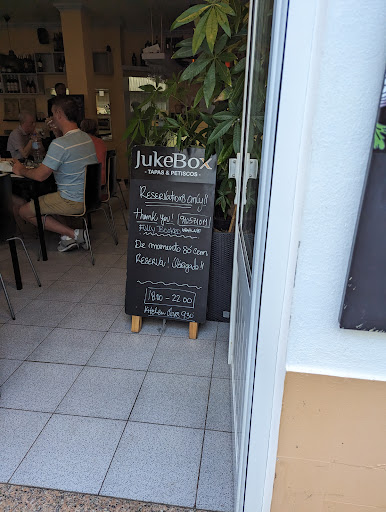 JukeBox
- TAPAS & PETISCOS -
RESERVATIONS ONLY!!
Thank you!
FULLY BOOKED
DE momento SÓ com
RESERVA! Obrigado!!
18:00 - 22:00
Kitchen